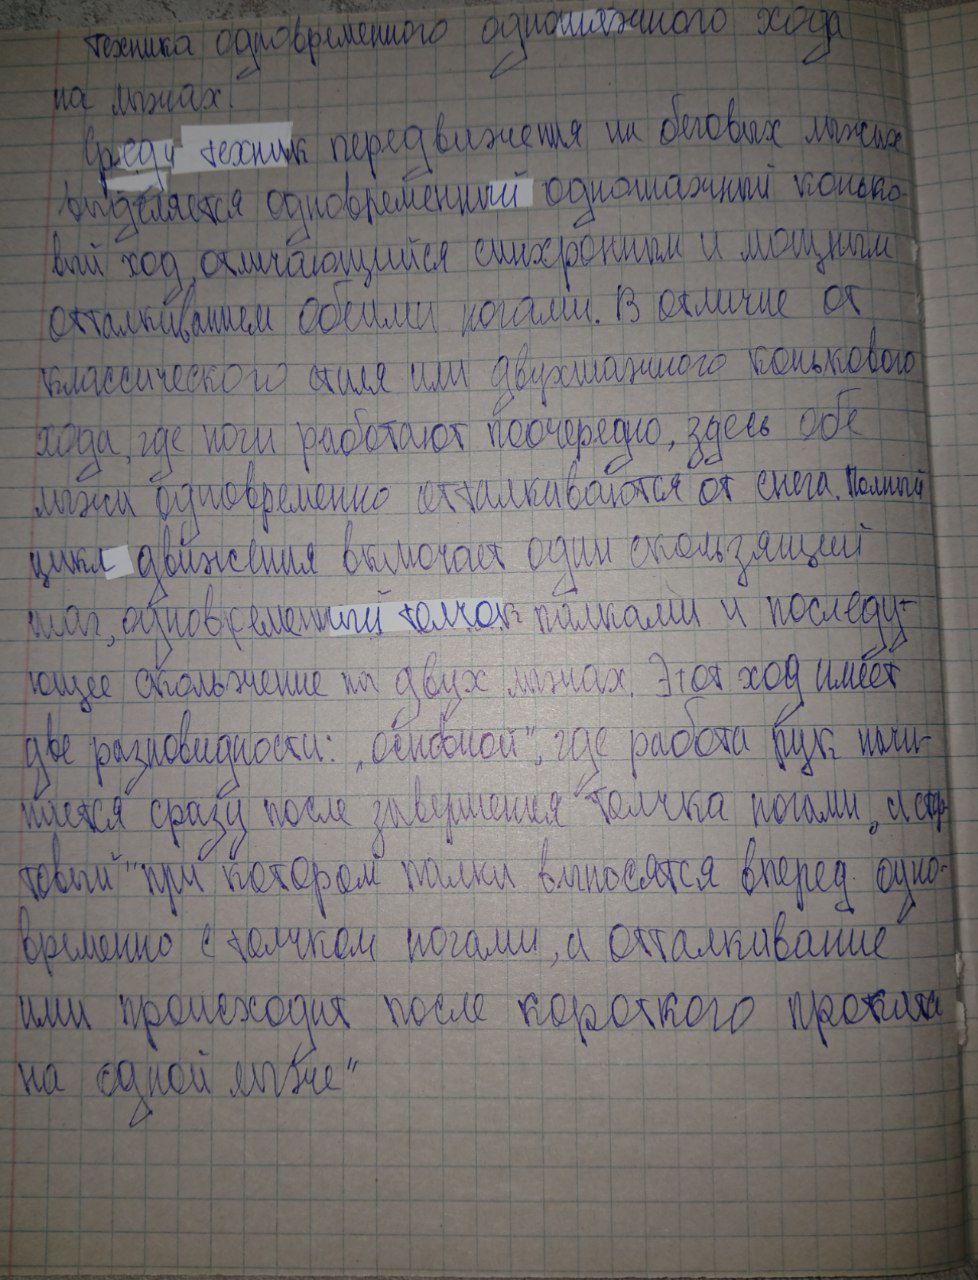 Техника одновременного одношажного хода
на лыжах.
Среди техник передвижения на беговых лыжах
выделяется одновременный одношажный конько-
вый ход, отличающийся синхронным и мощным
отталкиванием обеими ногами. В отличие от
классического стиля или двухшажного конькового
хода, где ноги работают поочередно, здесь обе
лыжи одновременно отталкиваются от снега. Полный
цикл движения включает один скользящий
шаг, одновременный толчок палками и последу-
ющее скольжение на двух лыжах. Этот ход имеет
две разновидности: „основной", где работа рук начи-
нается сразу после завершения толчка ногами, „и стар-
товый" при котором палки выносятся вперед одно-
временно с толчком ногами, а отталкивание
ими происходит после короткого проката
на одной лыже"